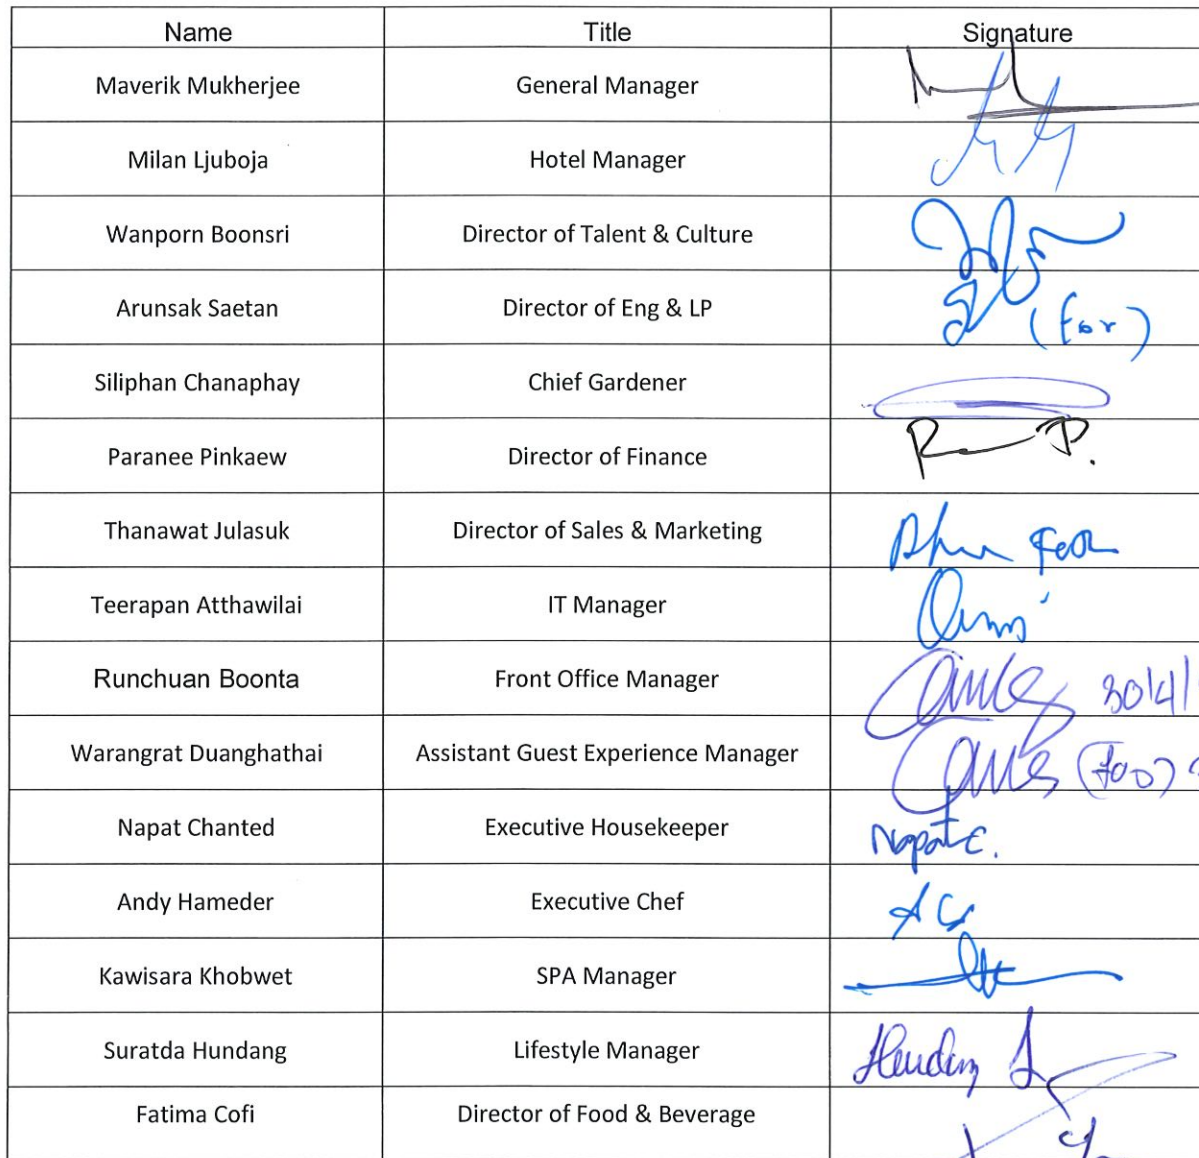 Name Title Signature
Maverik Mukherjee General Manager
Milan Ljuboja Hotel Manager
Wanporn Boonsri Director of Talent & Culture
Arunsak Saetan Director of Eng & LP (for)
Siliphan Chanaphay Chief Gardener
Paranee Pinkaew Director of Finance
Thanawat Julasuk Director of Sales & Marketing
Teerapan Atthawilai IT Manager
Runchuan Boonta Front Office Manager 30/4/
Warangrat Duanghathai Assistant Guest Experience Manager
Napat Chanted Executive Housekeeper Napat C.
Andy Hameder Executive Chef
Kawisara Khobwet SPA Manager
Suratda Hundang Lifestyle Manager
Fatima Cofi Director of Food & Beverage